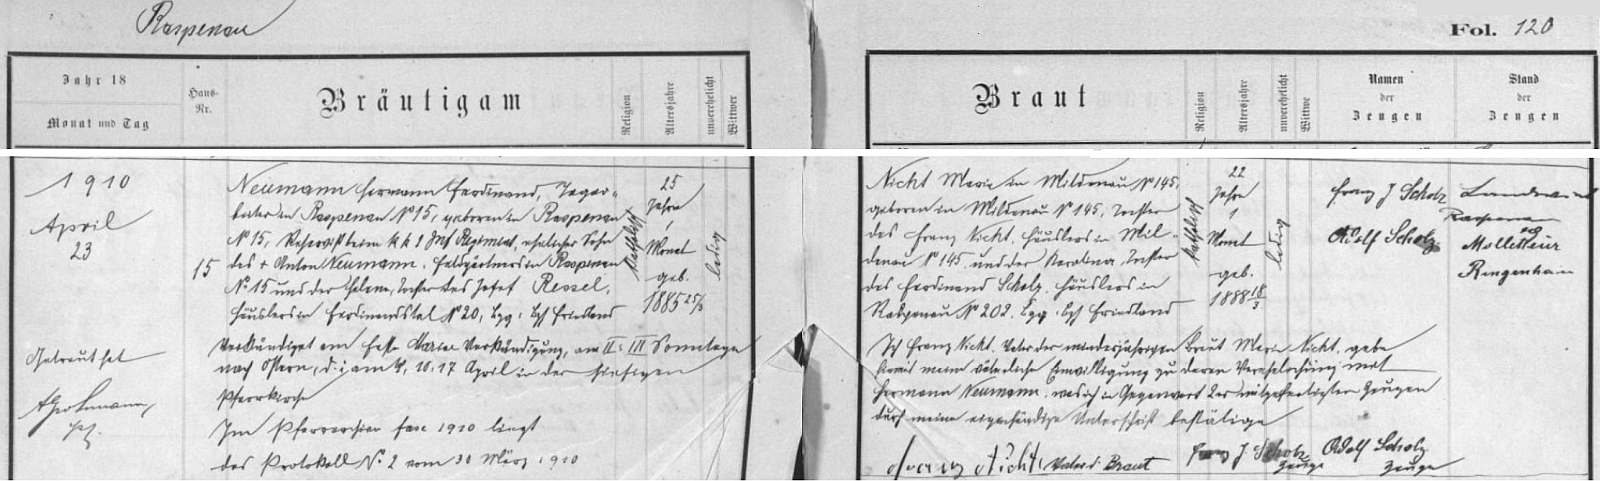 Raspenau
Fol. 120
Jahr 18
Monat und Tag
Haus-
Nr.
Bräutigam
Religion
Altersjahre
unverehelicht
Wittwer
Braut
Religion
Altersjahre
unverehelicht
Wittwe
Namen
der
Zeugen
Stand
der
Zeugen
1910
April
23
15
Neumann Hermann Ferdinand, Tagar-
beiter in Raspenau N° 15, geboren in Raspenau
N° 15, Reservist beim k k 1 Inf Regiment, ehelicher Sohn
des + Anton Neumann, Feldgärtners in Raspenau
N° 15 und der Helena, Tochter des Josef Ressel,
Häuslers in Ferdinandstal N° 20, Bez: Bzh Friedland
katholisch
25
Jahre
1
Monat
geb.
1885 25/3
ledig
Getraut hat
verkündiget am Feste Mariä Verkündigung, am II. u. III Sonntage
nach Ostern, d. i. am 4, 10. 17 April in der hiesigen
Pfarrkirche
Im Pfarrarchiv fasc 1910 liegt
das Protokoll N. 2 vom 30 März 1910
Nicht Marie in Mildenau N° 145,
geboren in Mildenau N° 145, Tochter
des Franz Nicht, Häuslers in Mil-
denau N° 145 und der Karolina, Tochter
des Ferdinand Scholz, Häuslers in
Raspenau N° 202. Bez: Bzh Friedland
katholisch
22
Jahre
1
Monat
geb.
1888 18/3
ledig
Franz J Scholz
Adolf Scholz
Landwirt
Raspenau
Mollitteur
Ringenhain
Ich Franz Nicht, Vater der minderjährigen Braut Marie Nicht, gebe
hiemit meine väterliche Einwilligung zu deren Verehelichung mit
Hermann Neumann, was ich in Gegenwart der mitgefertigten Zeugen
durch meine eigenhändige Unterschrift bestätige
Franz Nicht Vater d. Braut
Franz J. Scholz
Zeuge
Adolf Scholz
Zeuge